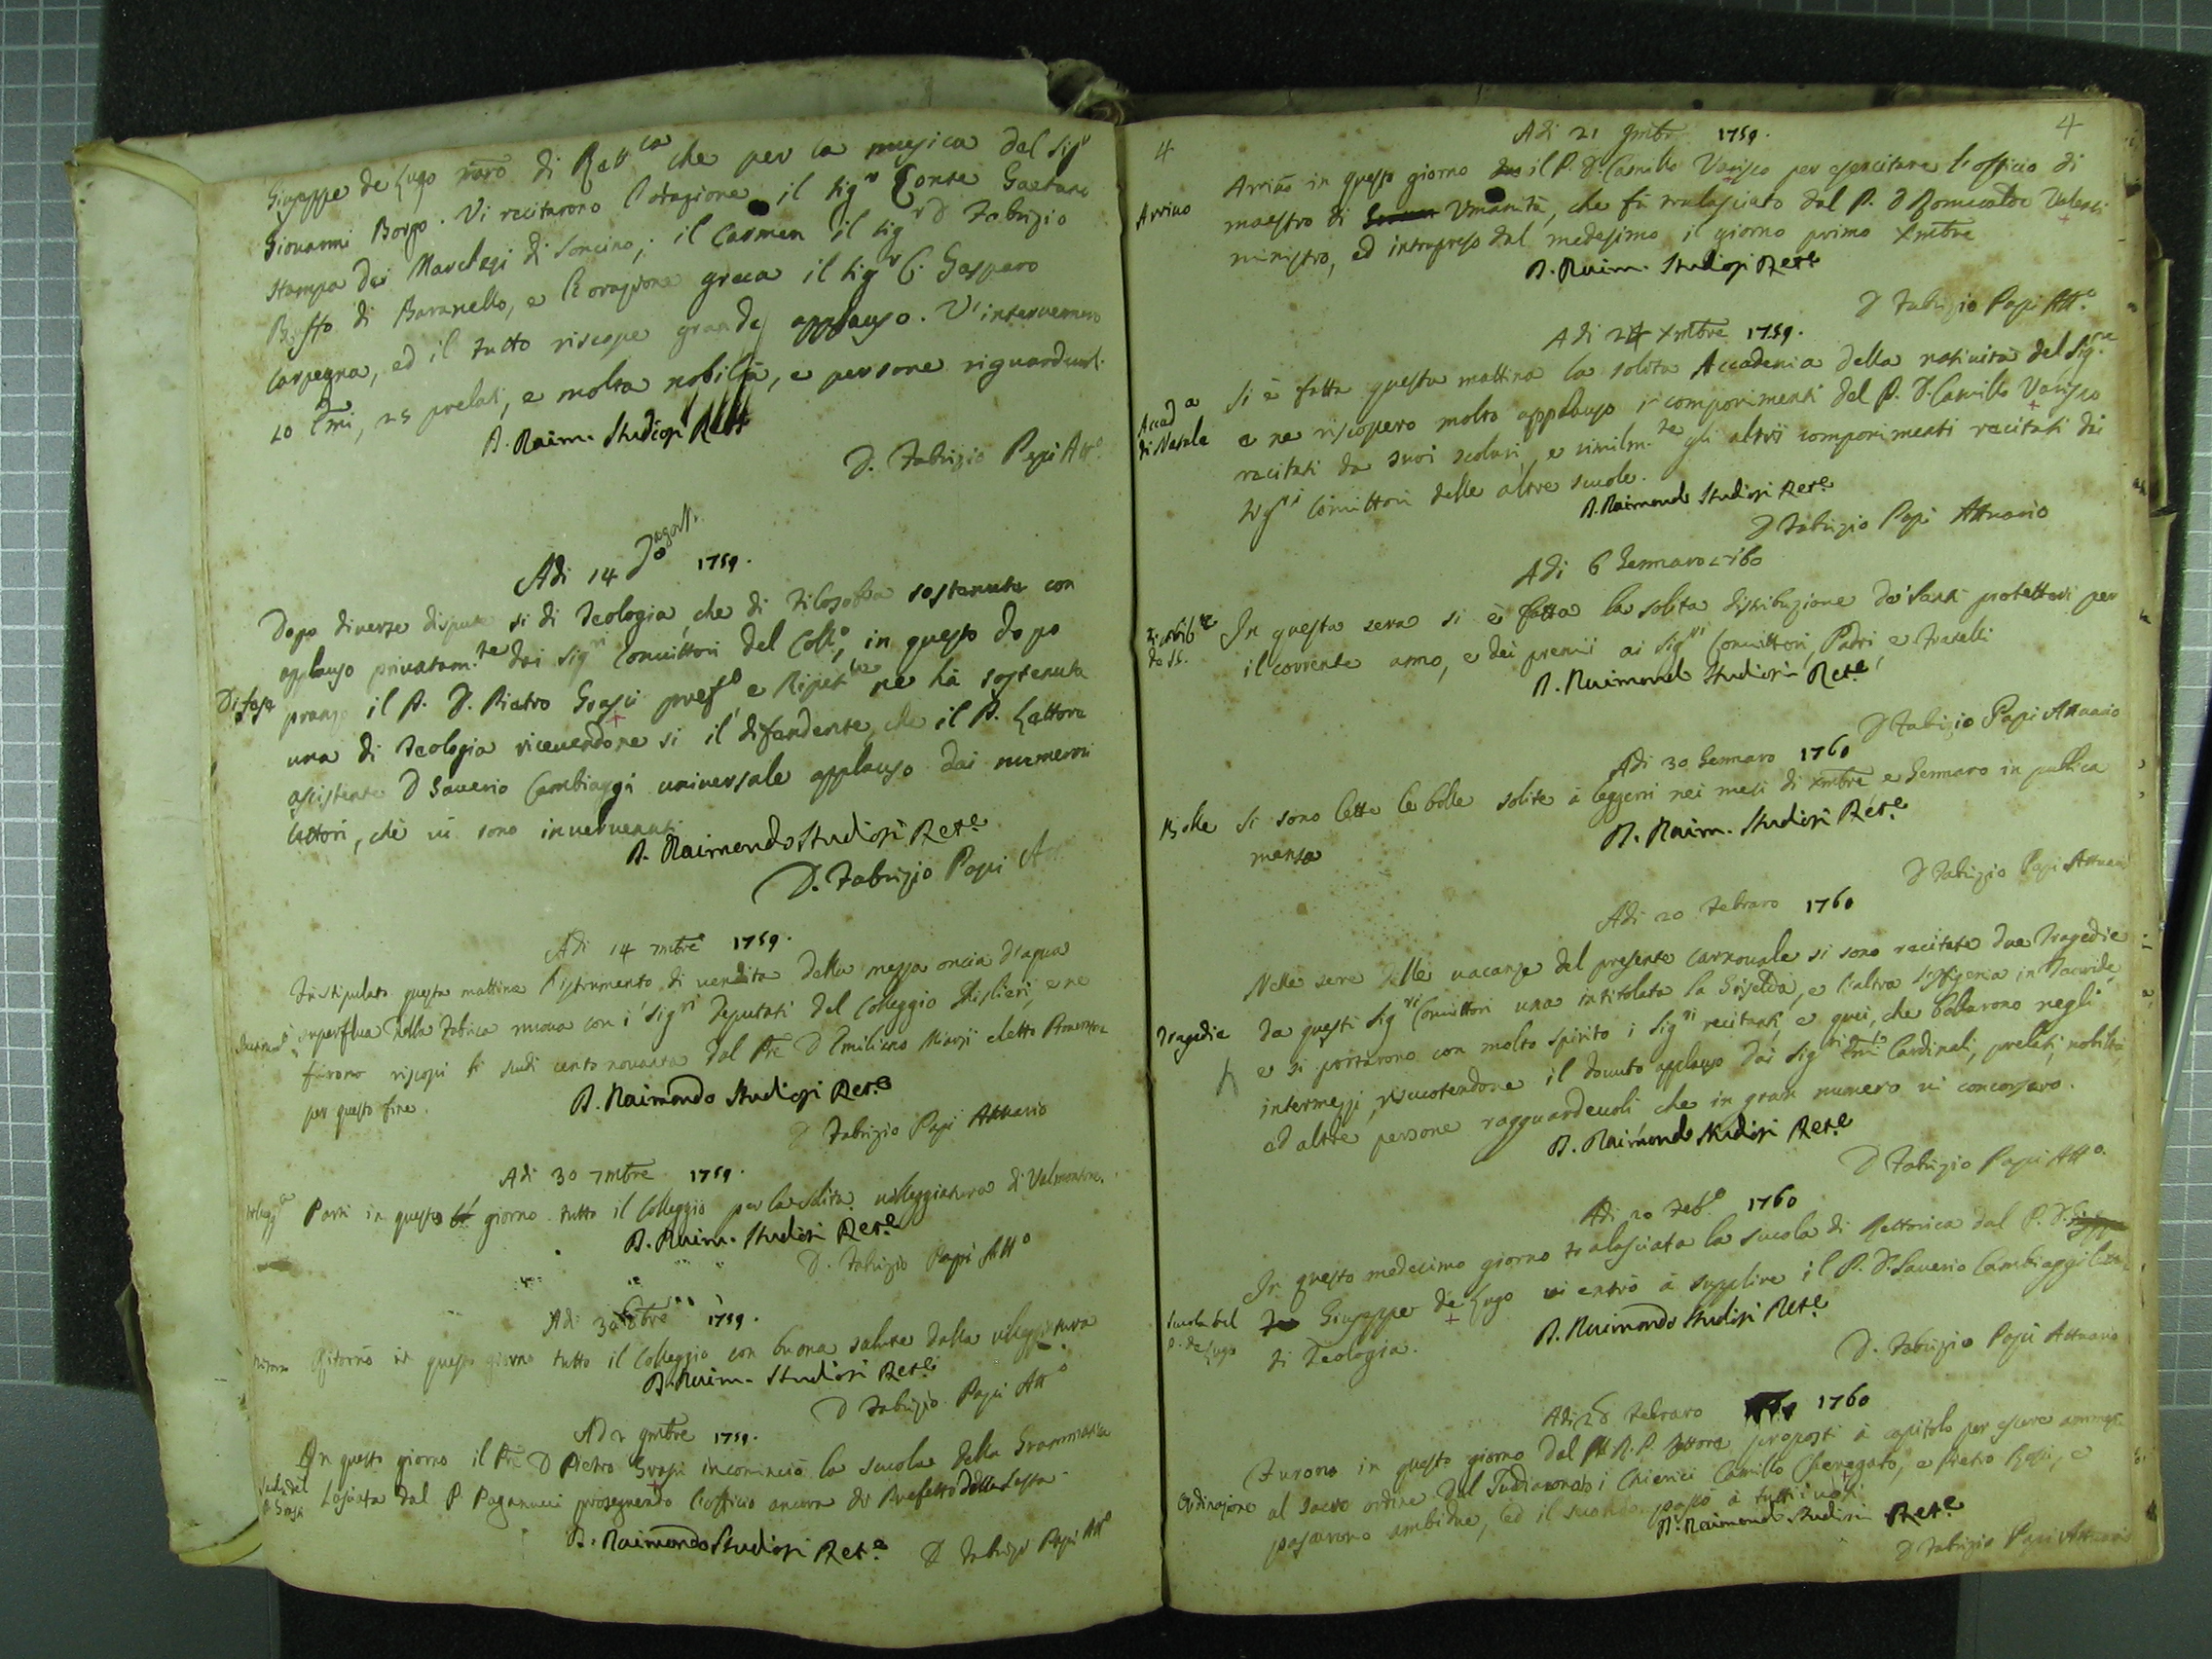 Giuseppe de Lugo nr̃o di Rett.ca che per la musica del Sig.r
Giovanni Borgo. Vi recitarono l'orazione il Sig.r Conte Gaetano
Stampa dei Marchesi di Soncino, il Carmen il Sig.r D Fabrizio
di Baranello, e l'orazione greca il Sig.r C. Gasparo
Carpegna, ed il tutto riscosse grande applauso. V'intervennero
10 Em̃i, 25 prelati, e molta nobiltà, e persone riguardevoli.
D. Raim. Studiosi Rett
D. Fabrizio Papi Att.o
Adi 14 agosto 1759.
Difesa
Dopo diverse dispute sì di Teologia, che di Filosofia sostenute con
applauso privatam.te dai Sig.ri Convittori del Coll.o, in questo dopo
pranzo il P. D. Pietro Grassi pref.o, e Ripet.re ne hà sostenuta
una di Teologia ricevendone sì il difendente, che il P. Lettore
assistente D Saverio Cambiaggi universale applauso dai numerosi
lettori, che vi sono intervenuti
D. Raimondo Studiosi Ret.e
D. Fabrizio Papi Att
Adi 14 7mbre 1759.
Fu stipulato questa mattina l'istrumento di vendita della mezza oncia d'acqua
superflua della Fabrica nuova con i Sig.ri Deputati del Colleggio Ghislieri, e ne
furono riscossi li scudi cento novanta dal Pre D Emiliano
per questo fine.
D. Raimondo Studiosi Ret.e
D Fabrizio Papi Attuario
Adi 30 7mbre 1759.
Partì in questo giorno tutto il Colleggio per la solita villeggiatura di Valmontone.
D. Raim. Studiosi Ret.e
D. Fabrizio Papi Att.o
Adi 30 8bre 1759.
Ritorno
Ritornò in questo giorno tutto il Colleggio con buona salute dalla villeggiatura
D. Raim. Studiosi Ret.e
D Fabrizio Papi Att.o
Adi 9mbre 1759.
Scuola del P. Grassi
In questo giorno il Pre D Pietro Grassi incominciò la scuola della Grammatica
lasciata dal P Paganucci proseguendo l'officio ancora di Prefetto della
D. Raimondo Studiosi Ret.e
D Fabrizio Papi Att.o
4
4
Adi 21 9mbre 1759.
Arrivo
Arrivò in questo giorno il P. D. Camillo Varisco per esercitare l'officio di
maestro di Umanità, che fù tralasciato dal P. D Romualdo Valenti
ministro, ed intrapreso dal medesimo il giorno primo Xmbre
D. Raim. Studiosi Ret.e
D Fabrizio Papi Att.o
Adi 24 Xmbre 1759.
Accad.a di Natale
Si è fatta questa mattina la solita Accademia della natività del Sig.re
e ne riscossero molto applauso i componimenti del P. D. Camillo Varisco
recitati da suoi scolari, e similm.te gli altri componimenti recitati dai
Sig.ri Convittori delle altre scuole.
D. Raimondo Studiosi Ret.e
D Fabrizio Papi Attuario
Adi 6 Gennaro 1760
In questa sera si è fatta la solita distribuzione de' Santi protettori per
il corrente anno, e dei premii ai Sig.ri Convittori, Padri, e Fratelli
D. Raimondo Studiosi Ret.e
D Fabrizio Papi Attuario
Adi 30 Gennaro 1760
Bolle
Si sono lette le bolle solite à leggersi nei mesi di Xmbre e Gennaro in publica
mensa
D. Raim. Studiosi Ret.e
D Fabrizio Papi Attuario
Adi 20 Febraro 1760
Tragedie
Nelle sere delle vacanze del presente Carnovale si sono recitate due Tragedie
da questi Sig.ri Convittori una intitolata la Griselda, e l'altra l'Ifigenia in Tauride,
e si portarono con molto spirito i Sig.ri recitanti, e quei, che ballarono negli
intermezzi, riscuotendone il dovuto applauso dai Sig.ri Em̃i Cardinali, prelati, nobiltà
ed altre persone ragguardevoli che in gran numero vi concorsero.
D. Raimondo Studiosi Ret.e
D Fabrizio Papi Att.o
Adi 20 Feb.o 1760
Scuola del P. de Lugo
In questo medesimo giorno tralasciata la scuola di Rettorica dal P. D.
Giuseppe de Lugo vi entrò à supplire il P. D. Saverio Cambiaggi
di Teologia.
D. Raimondo Studiosi Ret.e
D. Fabrizio Papi Attuario
Adi 28 Febraro 1760
Ordinazione
Furono in questo giorno dal M. R. P. Rettore proposti à capitolo per essere ammessi
al sacro ordine del Sudiaconato i Chierici Camillo e Pietro Rossi, e
passarono ambidue, ed il secondo passò à tutti i voti
D. Raimondo Studiosi Ret.e
D Fabrizio Papi Attuario